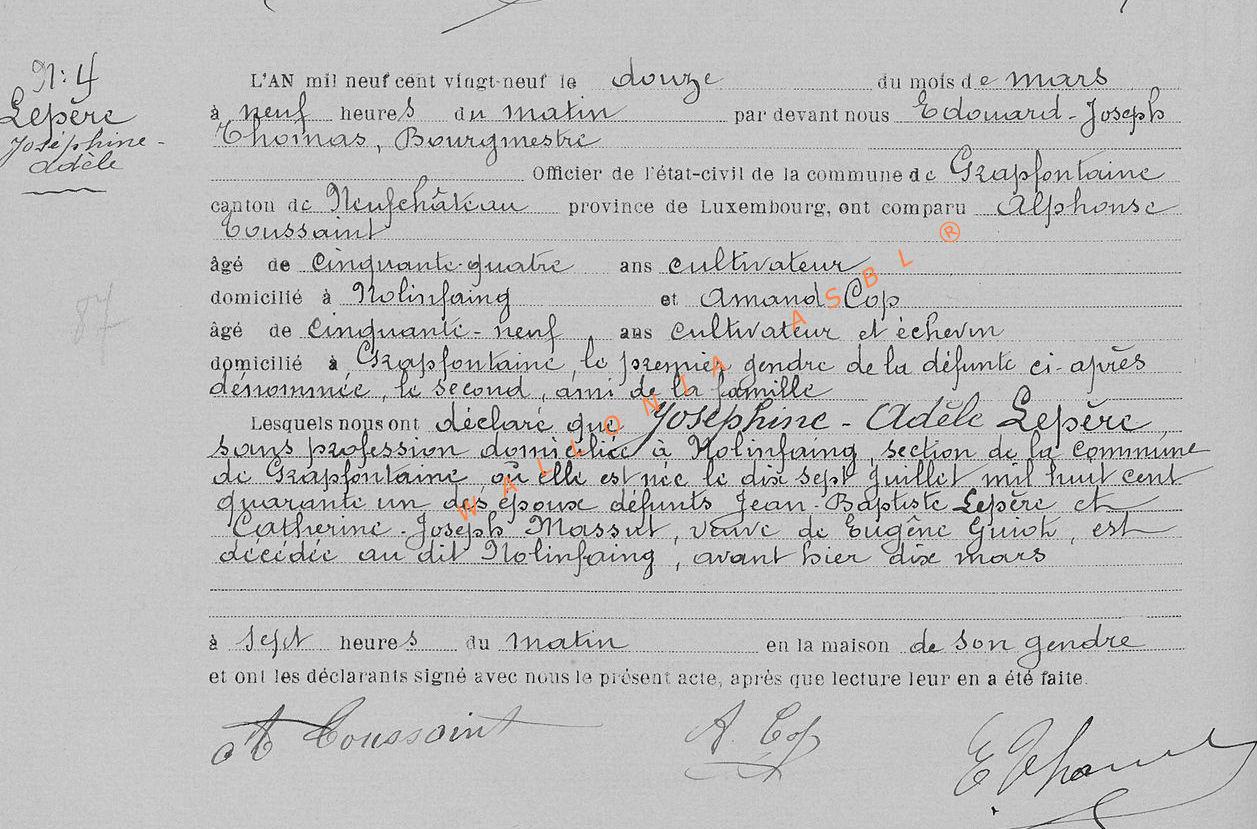 N: 4
Lepère
Joséphine-
Adèle
87
L'AN mil neuf cent vingt-neuf le douze du mois de mars
à neuf heures du matin par devant nous Edouard-Joseph
Thomas, Bourgmestre
Officier de l'état-civil de la commune de Grapfontaine
canton de Neufchâteau province de Luxembourg, ont comparu Alphonse
Toussaint
âgé de cinquante-quatre ans cultivateur
domicilié à Nolinfaing et Amand Cop
âgé de cinquante-neuf ans cultivateur et échevin
domicilié à Grapfontaine, le premier gendre de la défunte ci-après
dénommée, le second, ami de la famille
Lesquels nous ont déclaré que Joséphine-Adèle Lepère,
sans profession domiciliée à Nolinfaing, section de la commune
de Grapfontaine, où elle est née le dix sept juillet mil huit cent
quarante un des époux défunts Jean-Baptiste Lepère et
Catherine-Joseph Massut, veuve de Eugène Guiot, est
décédée au dit Nolinfaing, avant hier dix mars
à sept heures du matin en la maison de son gendre
et ont les déclarants signé avec nous le présent acte, après que lecture leur en a été faite.
A Toussaint A. Cop E Thomas
WALLONIA ASBL ®